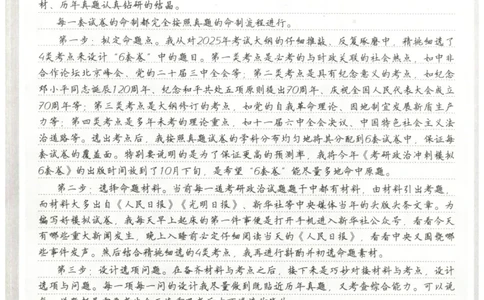 材、历年真题认真钻研的结晶。
每一套试卷的命制都完全按照真题的命制流程进行。
第一步：拟定命题点。我从对2025年考试大纲的仔细推敲、反复琢磨中，精挑细选了
4类考点来设计“6套卷”中的题目。第一类考点是必考的与时政关联的社会热点，如中非
合作论坛北京峰会、党的二十届三中全会等；第二类考点是具有纪念意义的考点，如纪念
邓小平同志诞辰120周年、纪念和平共处五项原则提出70周年、庆祝全国人民代表大会成立
70周年等；第三类考点是大纲修订的考点，如党的自我革命理论、因地制宜发展新质生产
力等；第四类考点是多年未考的理论重点，如十一届六中全会决议、中国特色社会主义法
治道路等。选出考点后，我按照真题试卷的学科分布均匀地将其分配到6套试卷中，保证每
套试卷的覆盖面。特别要说明的是为了保证更高的预测率，我将今年《考研政治冲刺模拟
6套卷》的出版时间放到了10月下旬，是希望“6套卷”能尽量多地命中原题。
第二步：选择命题材料。当前每一道考研政治试题题干中都有材料，由材料引出考题，
而材料大多出自《人民日报》《光明日报》、新华社等中央媒体当年的头版头条文章。为
编写好模拟试卷，我每天早上起床的第一件事便是打开手机进入新华社公众号，看看今天
有哪些重大新闻发生，晚上入睡前必定仔细阅读当天的《人民日报》，看看中央又围绕哪
些事件发声。然后结合精挑细选的4类考点，我再进行斟酌并初选命题素材。
第三步：设计选项与问题。在备齐材料与考点之后，接下来是巧妙对接材料与考点，设计
选项与问题。每一项每一问的设计我尽量做到既贴近历年真题，又考查综合能力。可以说